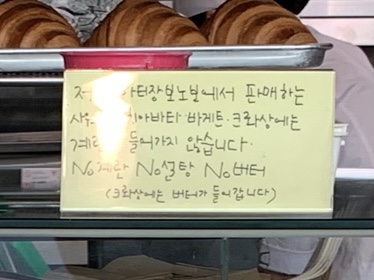 아터장보노보에서 판매하는
치아바타·바게트·크화상에는
들어가지 않습니다.
No계란 No설탕 No버터
(크화상에는 버터가 들어갑니다)